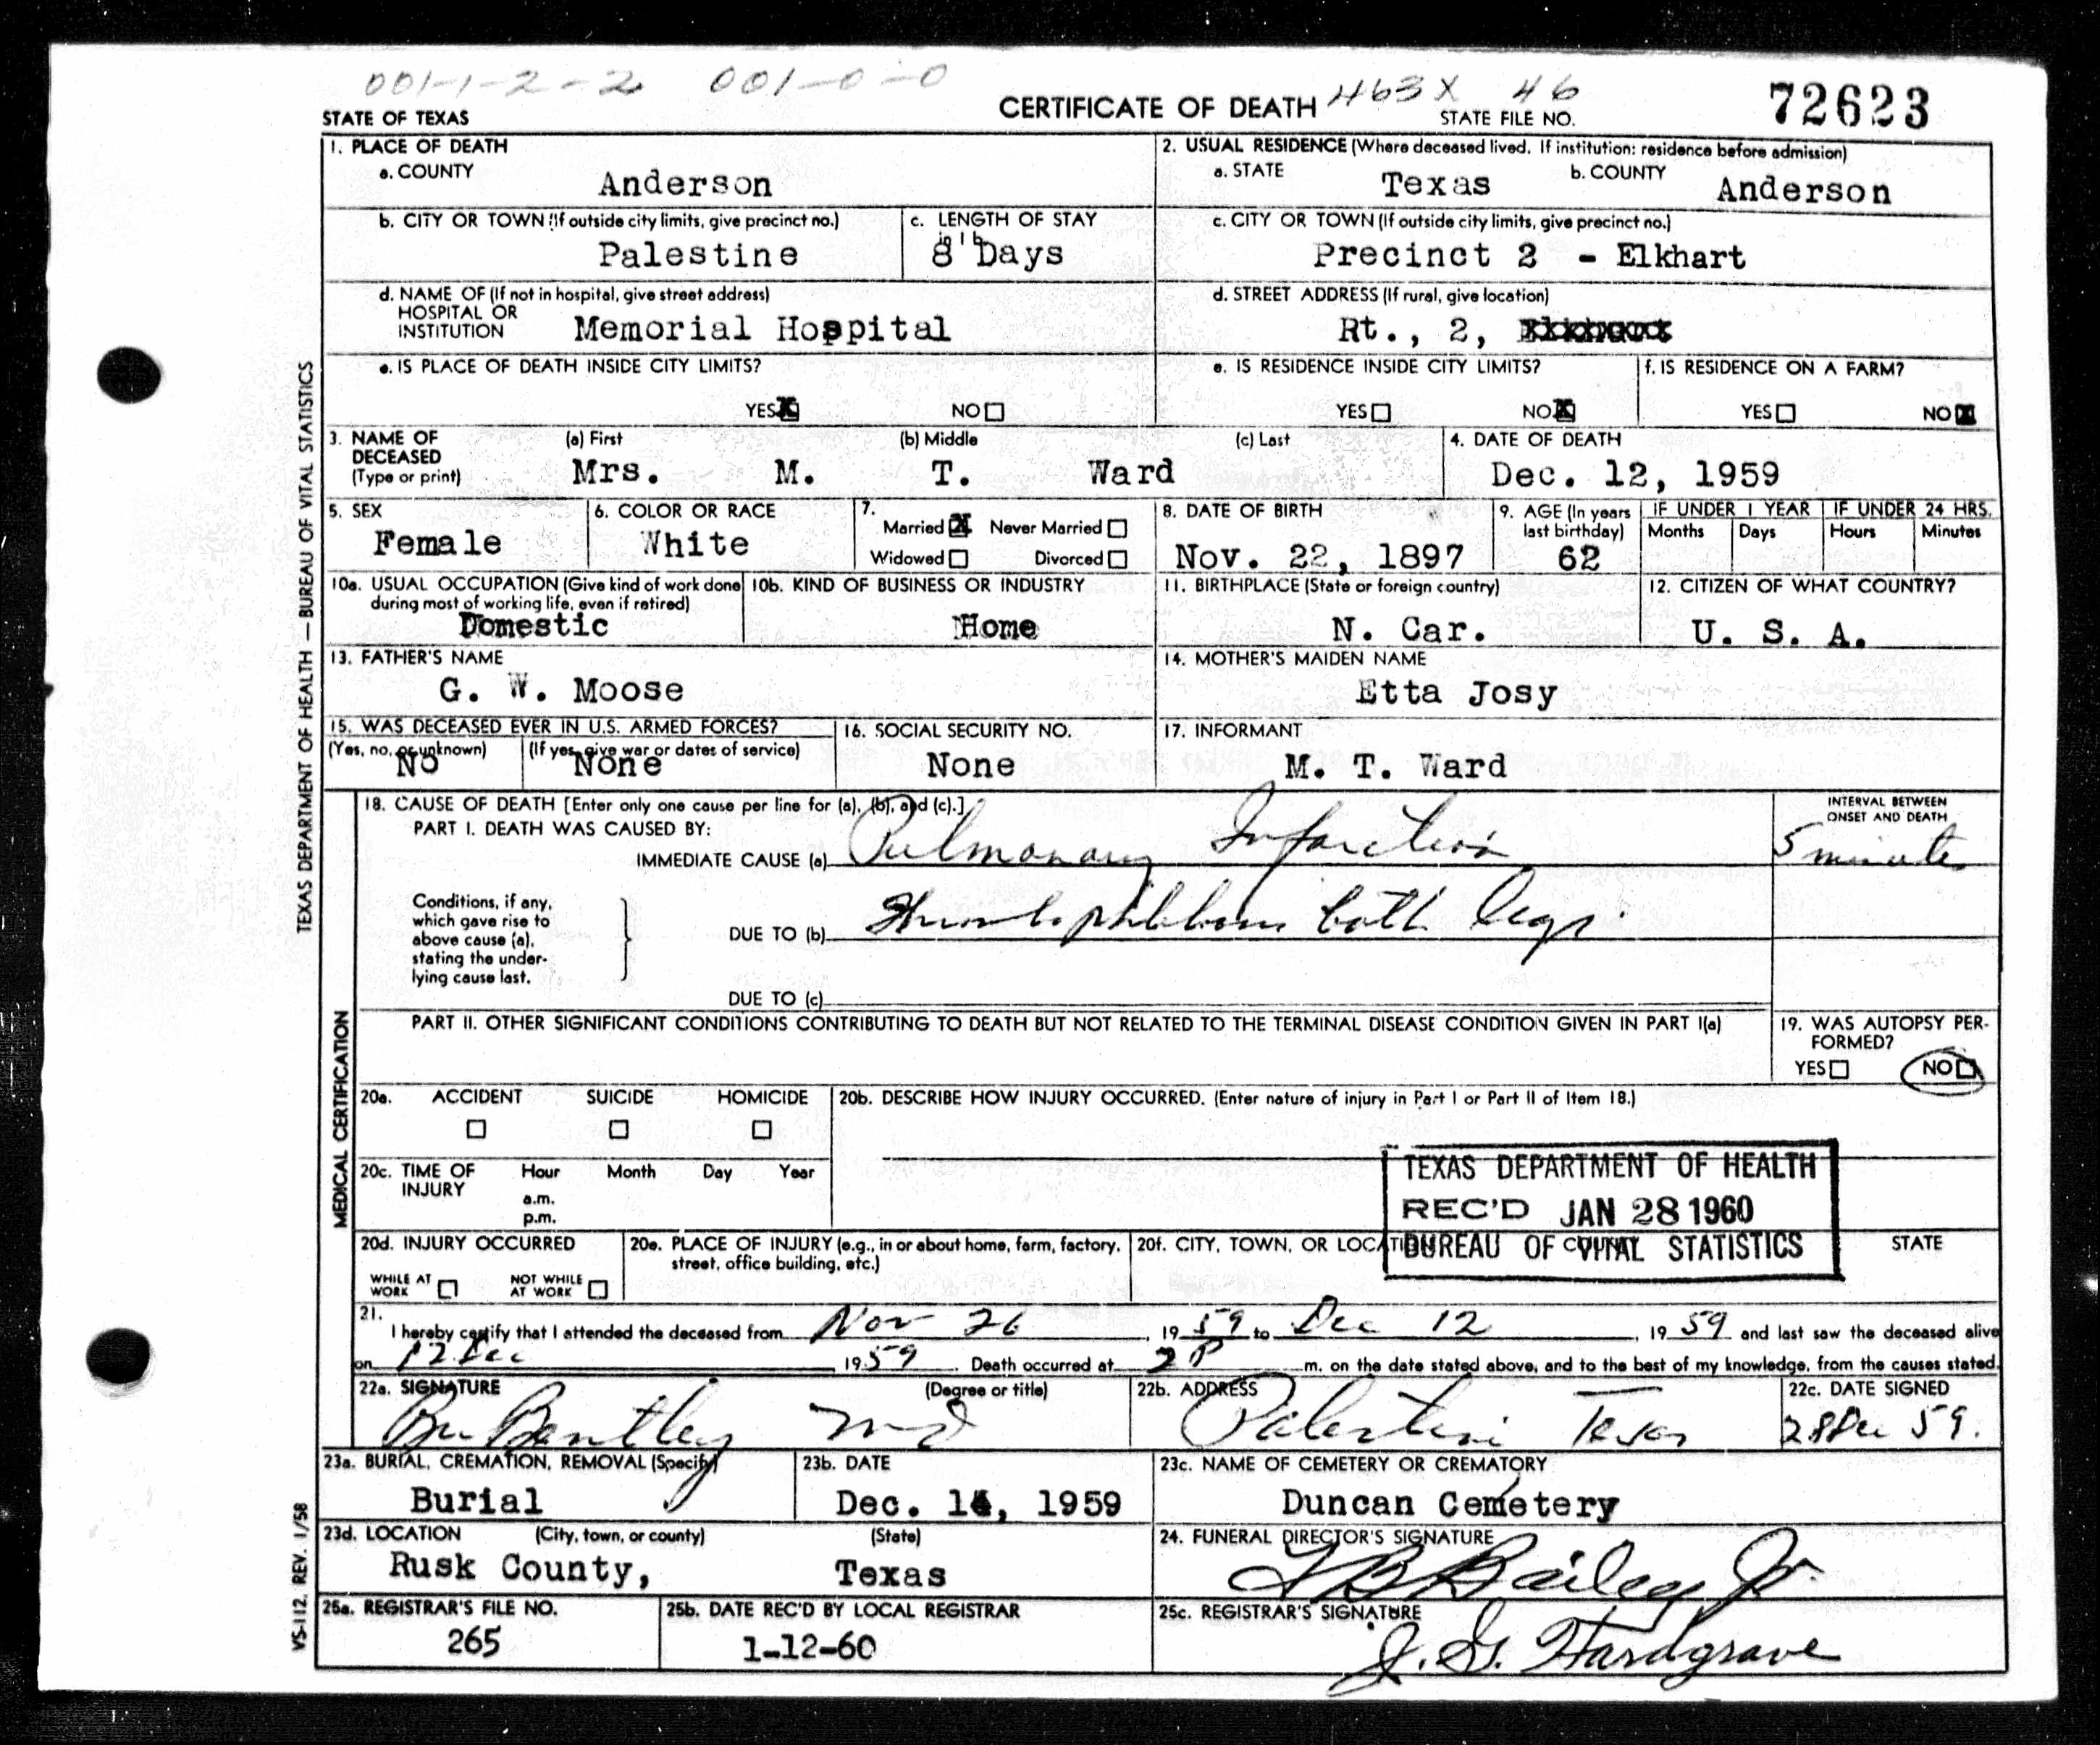 001-1-2-2 001-0-0 463X 46
STATE OF TEXAS CERTIFICATE OF DEATH STATE FILE NO. 72623
1. PLACE OF DEATH
a. COUNTY Anderson
2. USUAL RESIDENCE (Where deceased lived. If institution: residence before admission)
a. STATE Texas b. COUNTY Anderson
b. CITY OR TOWN (If outside city limits, give precinct no.) Palestine
c. LENGTH OF STAY in 1b 8 Days
c. CITY OR TOWN (If outside city limits, give precinct no.)
Precinct 2 - Elkhart
d. NAME OF (If not in hospital, give street address)
HOSPITAL OR
INSTITUTION Memorial Hospital
d. STREET ADDRESS (If rural, give location)
Rt., 2,
e. IS PLACE OF DEATH INSIDE CITY LIMITS?
YES X NO
e. IS RESIDENCE INSIDE CITY LIMITS?
YES NO X
f. IS RESIDENCE ON A FARM?
YES NO X
3. NAME OF DECEASED (Type or print)
(a) First (b) Middle (c) Last
Mrs. M. T. Ward
4. DATE OF DEATH
Dec. 12, 1959
5. SEX
Female
6. COLOR OR RACE
White
7. Married X Never Married
Widowed Divorced
8. DATE OF BIRTH
Nov. 22, 1897
9. AGE (In years last birthday)
62
IF UNDER 1 YEAR
Months Days
IF UNDER 24 HRS.
Hours Minutes
10a. USUAL OCCUPATION (Give kind of work done during most of working life, even if retired)
Domestic
10b. KIND OF BUSINESS OR INDUSTRY
Home
11. BIRTHPLACE (State or foreign country)
N. Car.
12. CITIZEN OF WHAT COUNTRY?
U. S. A.
13. FATHER'S NAME
G. W. Moose
14. MOTHER'S MAIDEN NAME
Etta Josy
15. WAS DECEASED EVER IN U.S. ARMED FORCES?
(Yes, no, or unknown) (If yes, give war or dates of service)
No None
16. SOCIAL SECURITY NO.
None
17. INFORMANT
M. T. Ward
18. CAUSE OF DEATH [Enter only one cause per line for (a), (b), and (c).]
PART I. DEATH WAS CAUSED BY:
IMMEDIATE CAUSE (a) Pulmonary Infarction
INTERVAL BETWEEN ONSET AND DEATH
5 minutes
Conditions, if any,
which gave rise to
above cause (a),
stating the under-
lying cause last.
DUE TO (b) both legs.
DUE TO (c)
PART II. OTHER SIGNIFICANT CONDITIONS CONTRIBUTING TO DEATH BUT NOT RELATED TO THE TERMINAL DISEASE CONDITION GIVEN IN PART I(a)
19. WAS AUTOPSY PER-
FORMED?
YES NO
20a. ACCIDENT SUICIDE HOMICIDE
20b. DESCRIBE HOW INJURY OCCURRED. (Enter nature of injury in Part I or Part II of Item 18.)
20c. TIME OF INJURY Hour Month Day Year
a.m.
p.m.
TEXAS DEPARTMENT OF HEALTH
REC'D JAN 28 1960
BUREAU OF VITAL STATISTICS
20d. INJURY OCCURRED
WHILE AT WORK NOT WHILE AT WORK
20e. PLACE OF INJURY (e.g., in or about home, farm, factory, street, office building, etc.)
20f. CITY, TOWN, OR LOCATION COUNTY STATE
21.
I hereby certify that I attended the deceased from Nov 26, 1959 to Dec 12, 1959 and last saw the deceased alive
on 12 Dec 1959. Death occurred at 2 P m. on the date stated above, and to the best of my knowledge, from the causes stated.
22a. SIGNATURE (Degree or title)
Bentley MD
22b. ADDRESS
Palestine Texas
22c. DATE SIGNED
28 Dec 59.
23a. BURIAL, CREMATION, REMOVAL (Specify)
Burial
23b. DATE
Dec. 14, 1959
23c. NAME OF CEMETERY OR CREMATORY
Duncan Cemetery
23d. LOCATION (City, town, or county) (State)
Rusk County, Texas
24. FUNERAL DIRECTOR'S SIGNATURE
Bailey Jr.
25a. REGISTRAR'S FILE NO.
265
25b. DATE REC'D BY LOCAL REGISTRAR
1-12-60
25c. REGISTRAR'S SIGNATURE
J. G. Hardgrave
TEXAS DEPARTMENT OF HEALTH — BUREAU OF VITAL STATISTICS
MEDICAL CERTIFICATION
VS-112. REV. 1/58